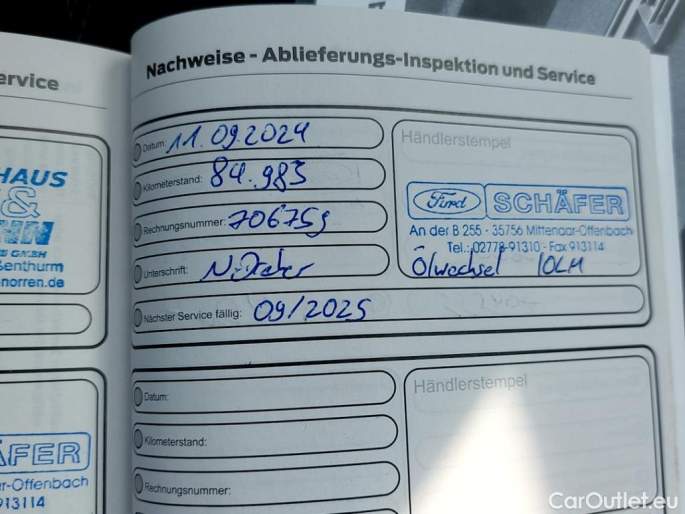 ervice
HAUS
&
NN
GMBH
ßenthurm
norren.de
ÄFER
r-Offenbach
913114
Nachweise - Ablieferungs-Inspektion und Service
Datum: 11.09.2024
Kilometerstand: 84.983
Rechnungsnummer: 706759
Unterschrift:
Nächster Service fällig: 09/2025
Händlerstempel
Ford SCHÄFER
An der B 255 - 35756 Mittenaar-Offenbach
Tel.: 02778-91310 - Fax 913114
Ölwechsel
Datum:
Kilometerstand:
Rechnungsnummer:
Händlerstempel
CarOutlet.eu